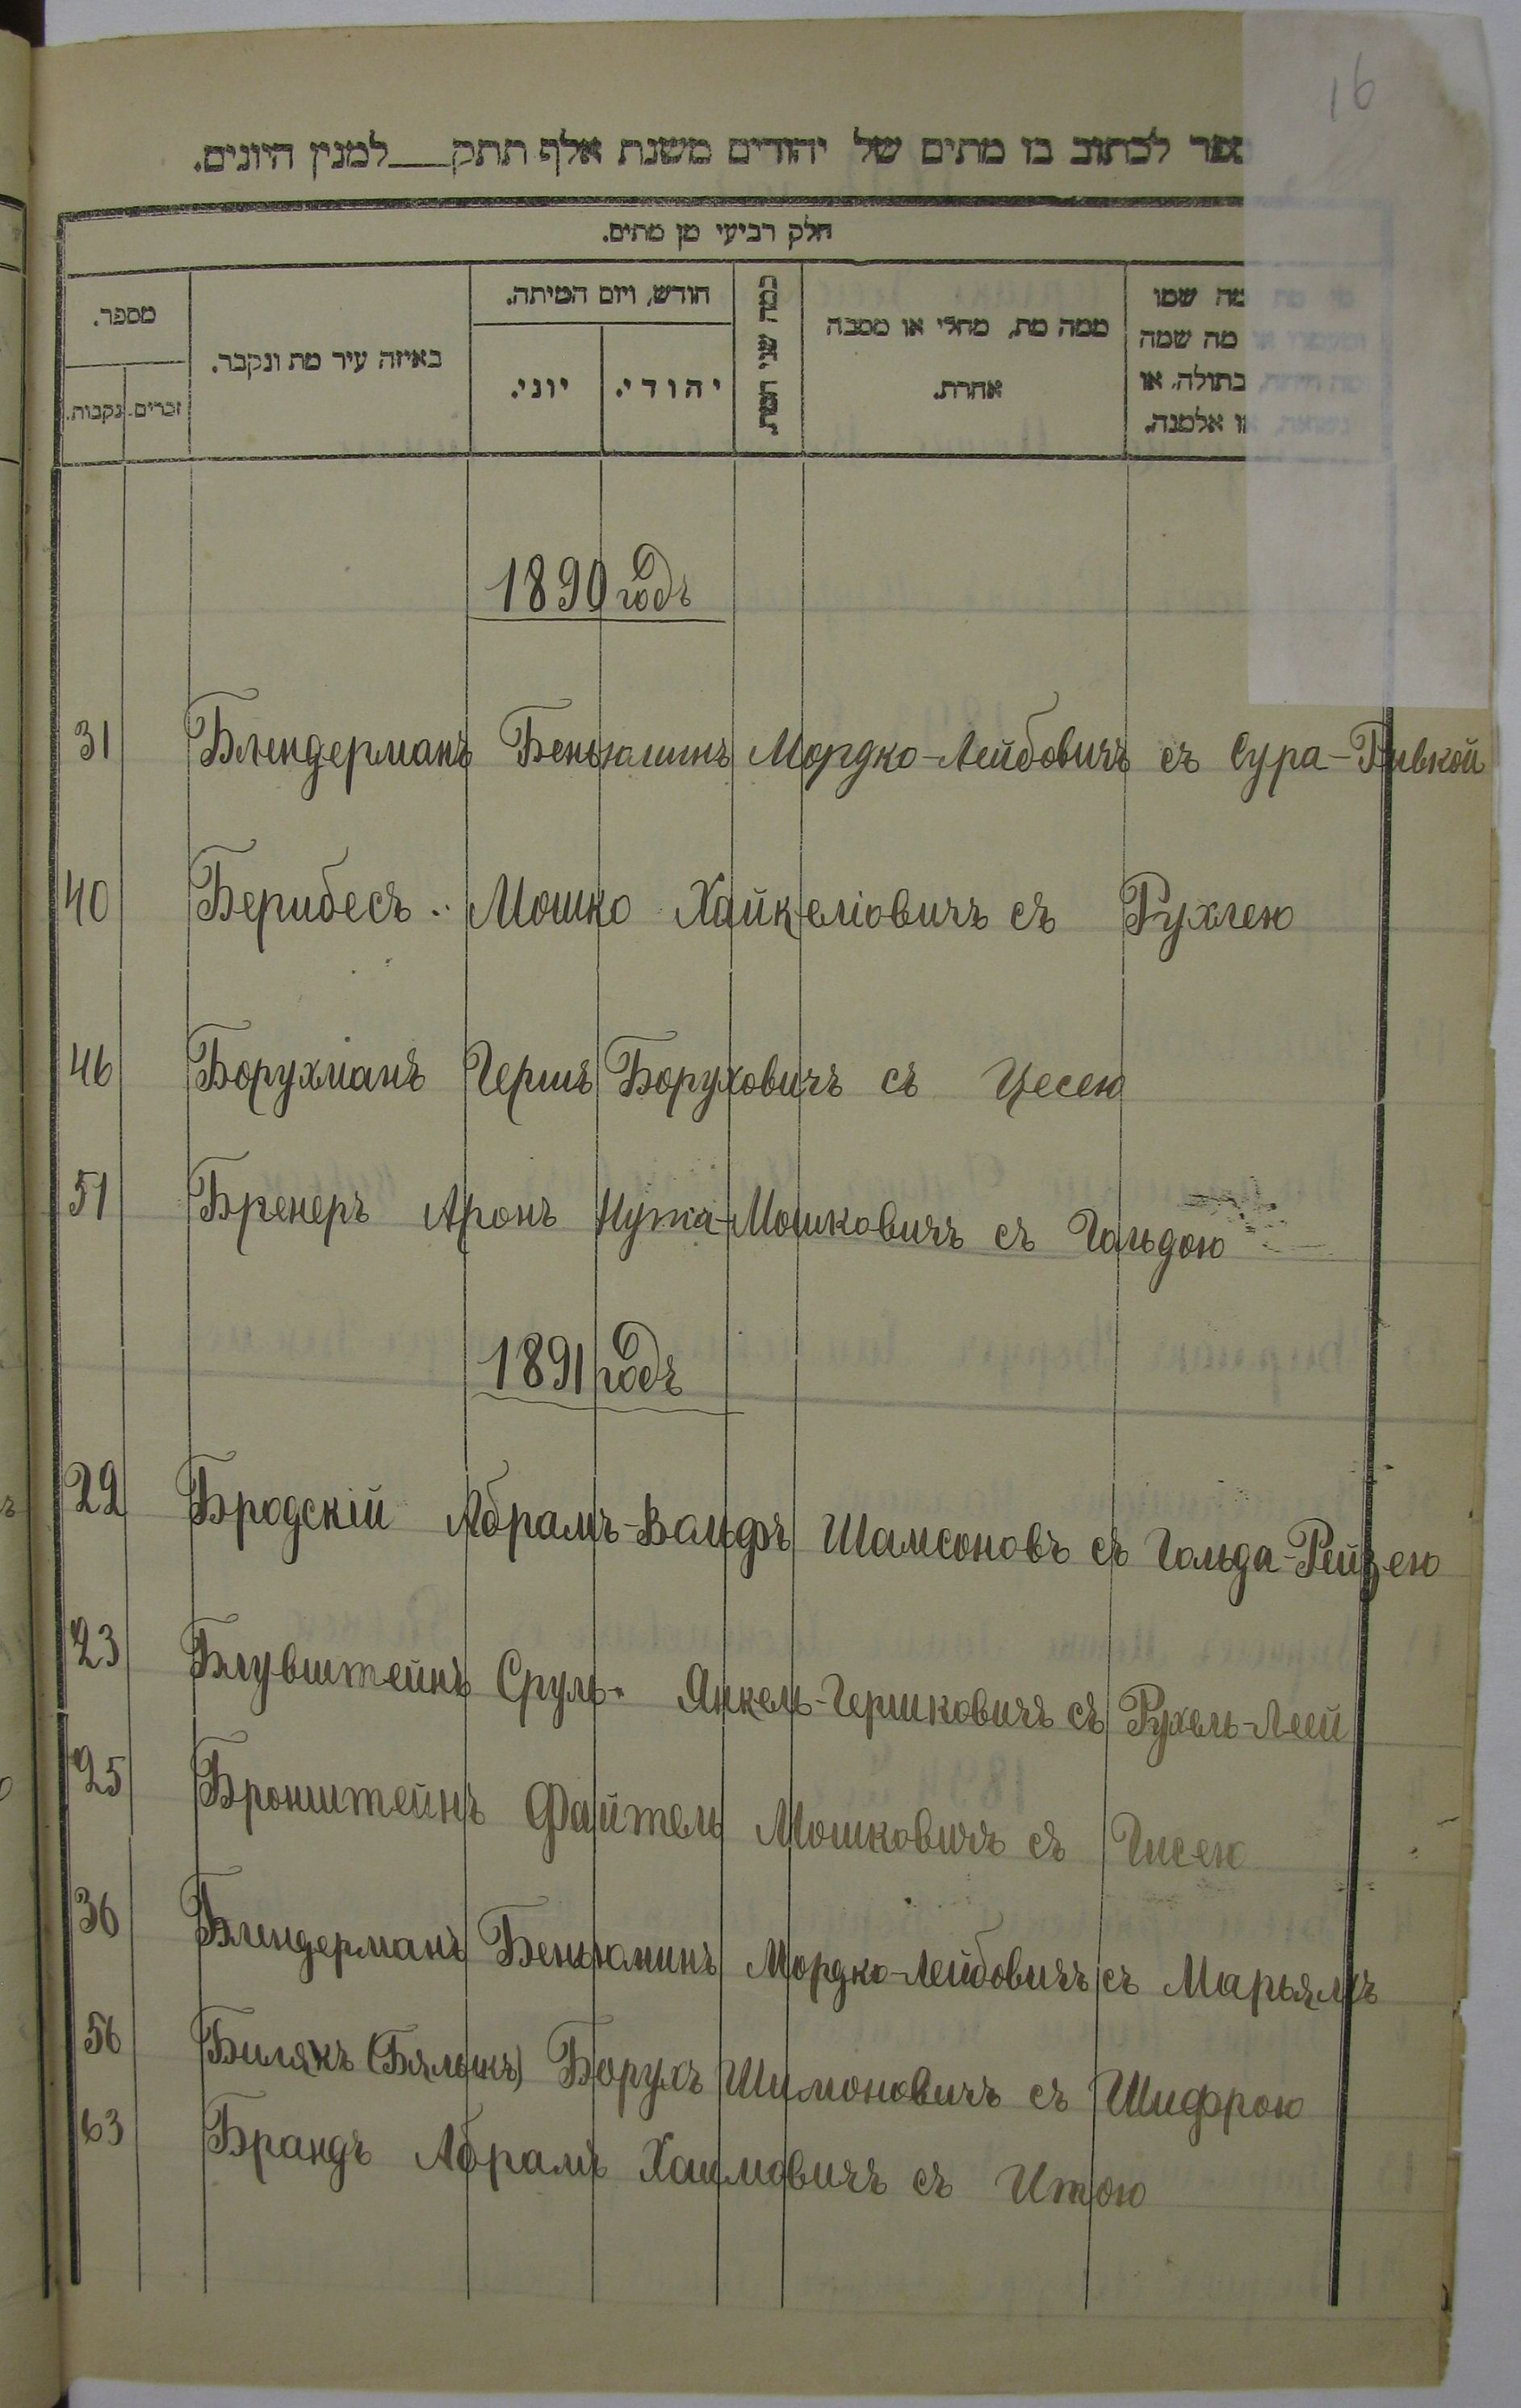 16
ספר לכתוב בו מתים של יהודים משנת אלף תתק___למנין היונים.
חלק רביעי מן מתים.
מספר.
נקבות.
זכרים.
באיזה עיר מת ונקבר.
חודש, ויום המיתה.
יוני.
יהודי.
כמה שני המת.
ממה מת, מחלי או מסבה
אחרת.
מי מת ומה שמו
ומעמדו או מה שמה
בתולה, או
נשואה, או אלמנה.
1890 годъ
31 Блендерманъ Беньюминъ Мордко-Лейбовичъ съ Сура-Ривкой
40 Берибесъ Мошко Хайкеліовичъ съ Рухлею
46 Борухманъ Гершъ Боруховичъ съ Цесею
51 Бренеръ Аронъ Нута-Мошковичъ съ Гольдою
1891 годъ
22 Бродскій Абрамъ-Вольфъ Шамсоновъ съ Гольда-Рейзею
23 Блувштейнъ Сруль Янкель-Гершковичъ съ Рухель-Леей
25 Бронштейнъ Файтель Мошковичъ съ Гисею
36 Блендерманъ Беньюминъ Мордко-Лейбовичъ съ Марьямъ
56 Билякъ (Бялыкъ) Борухъ Шимоновичъ съ Шифрою
63 Брандъ Абрамъ Хаимовичъ съ Итою